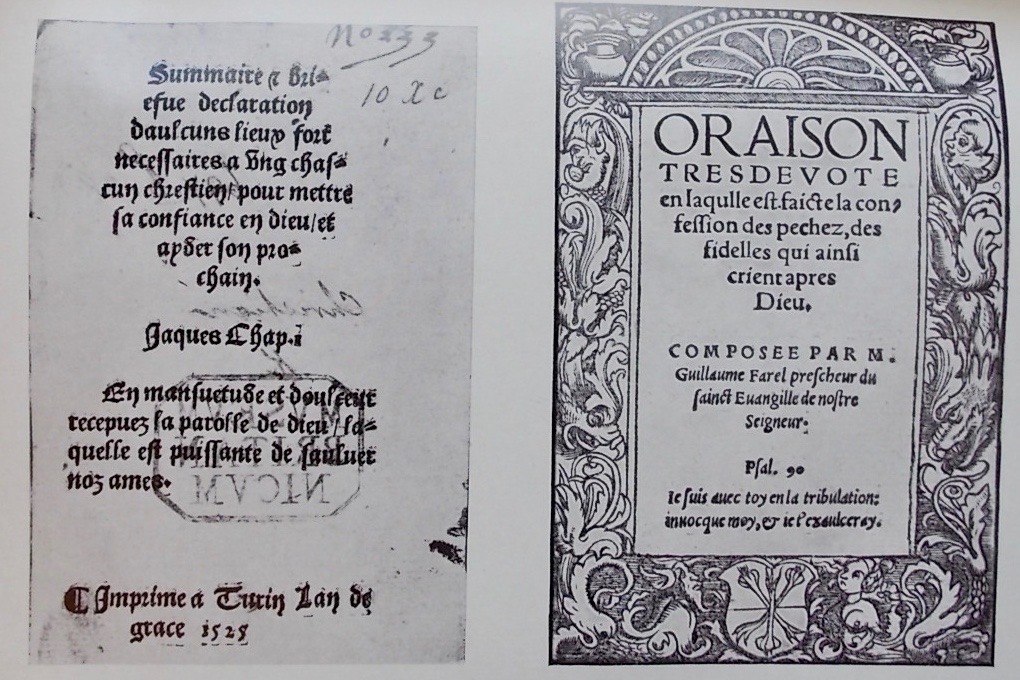 No 233
10 X c
Summaire & bri=
efue declaration
daulcuns lieux fort
necessaires a vng chas=
cun chrestien/ pour mettre
sa confiance en dieu/ et
ayder son pro=
chain.
Jaques Chap. i
En mansuetude et doulceur
recepuez la parolle de dieu/ la=
quelle est puissante de sauluer
noz ames.
MVSEVM
BRITAN
NICVM
Imprime a Turin Lan de
grace 1525
ORAISON
TRESDEVOTE
en laqulle est faicte la con,
fession des pechez, des
fidelles qui ainsi
crient apres
Dieu.
COMPOSEE PAR M.
Guillaume Farel prescheur du
sainct Euangille de nostre
Seigneur.
Psal. 90
Ie suis auec toy en la tribulation:
innocque moy, & ie t'exaulceray.